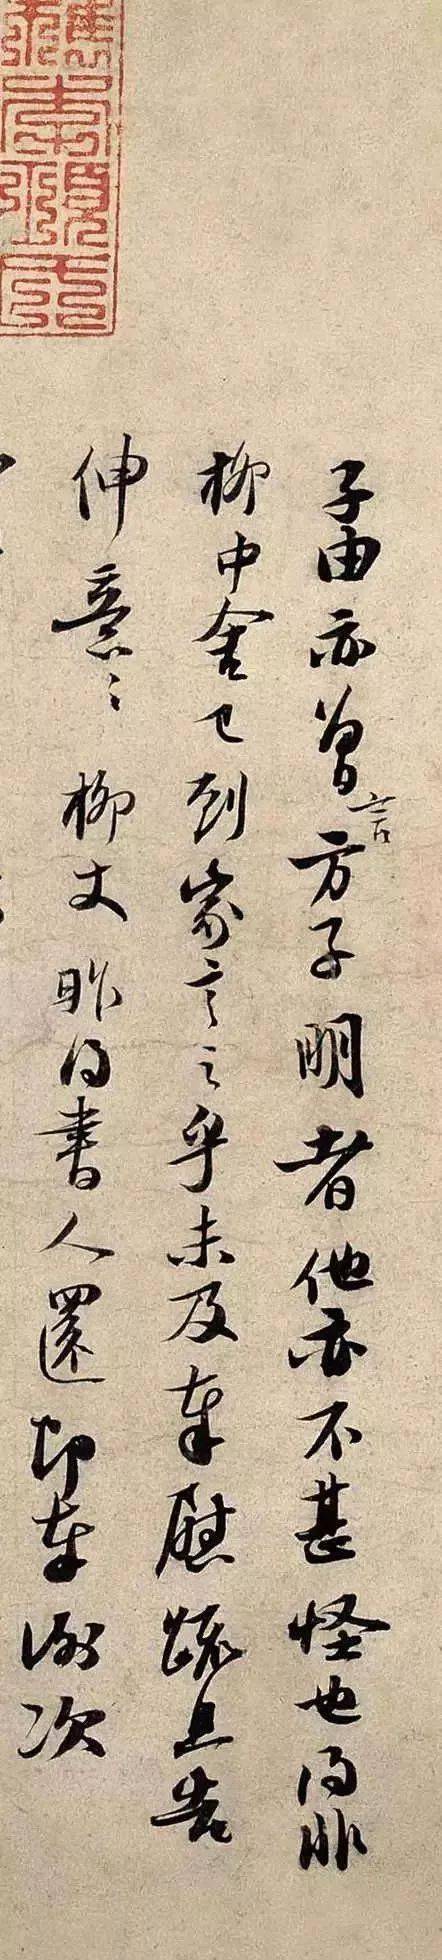 子由亦曾言方子明者他亦不甚怪也得非
柳中舍已到家言之乎未及奉慰疏且告
伸意々柳丈昨得书人還即奉谢次